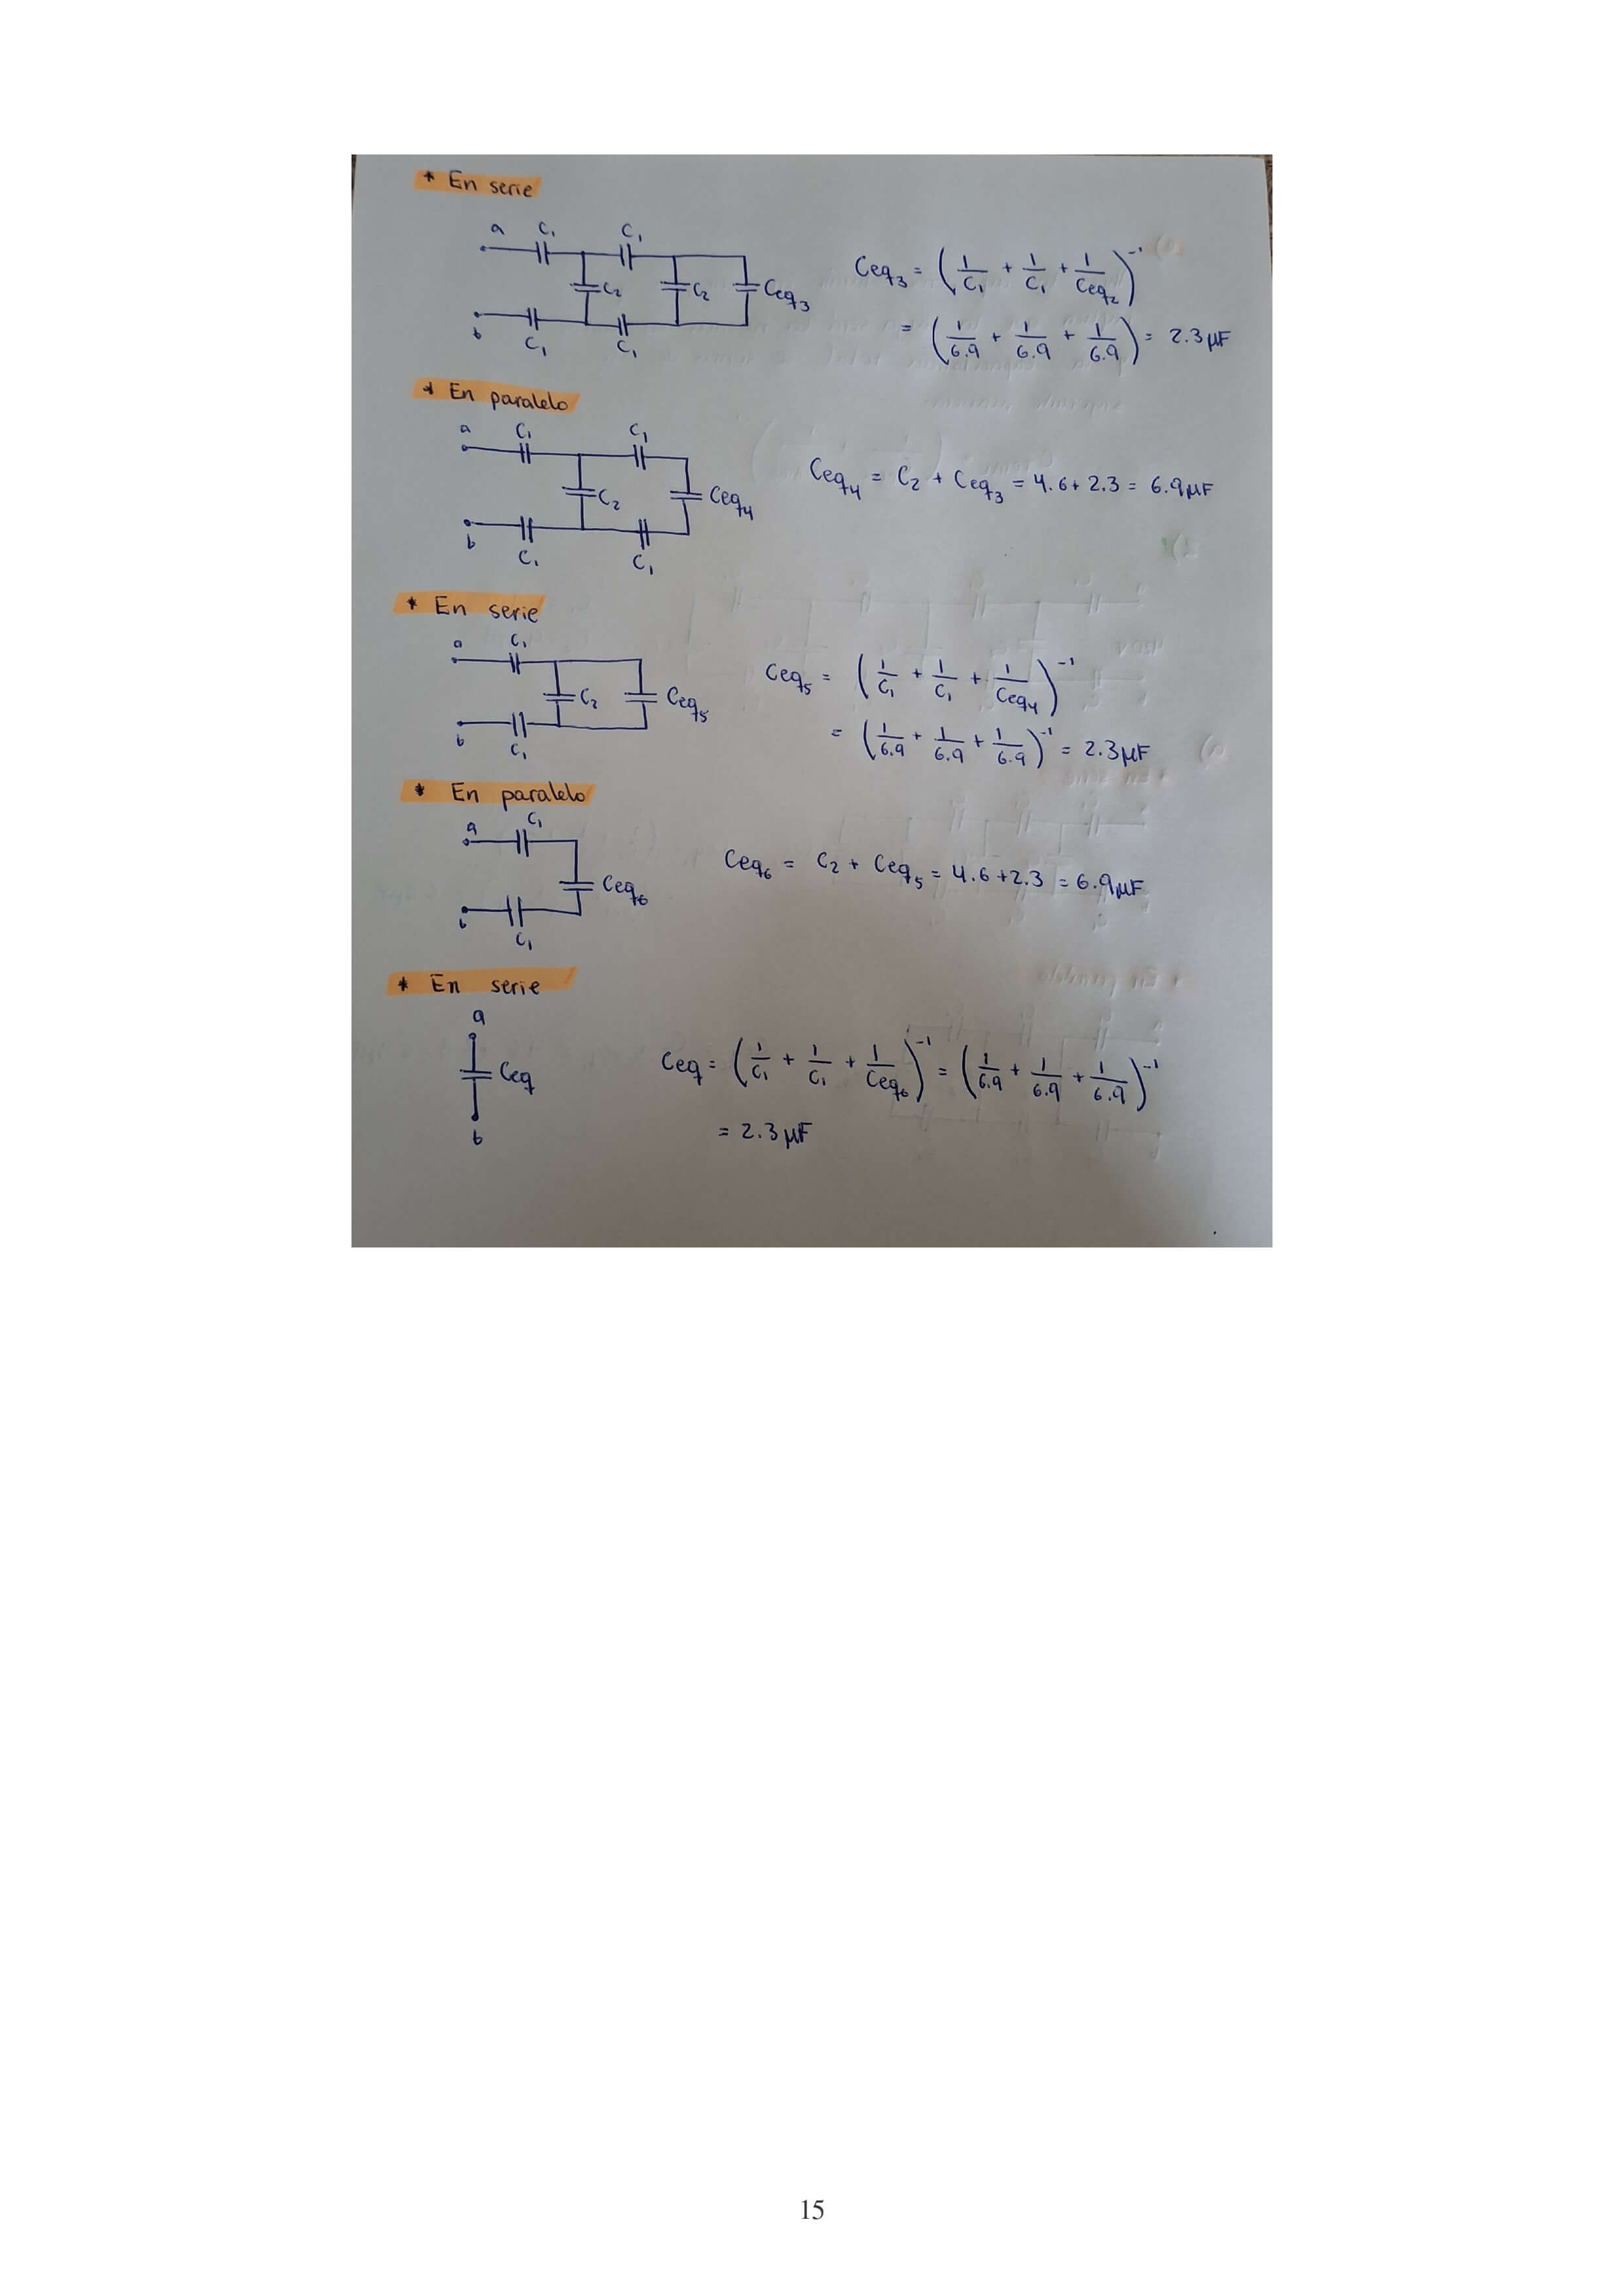 * En serie
a C₁ C₁
C₂ C₂ Ceq₃
b C₁ C₁
Ceq₃ = (1/C₁ + 1/C₁ + 1/Ceq₂)⁻¹
= (1/6.9 + 1/6.9 + 1/6.9) = 2.3 μF
* En paralelo
a C₁ C₁
C₂ Ceq₄
b C₁ C₁
Ceq₄ = C₂ + Ceq₃ = 4.6 + 2.3 = 6.9 μF
* En serie
a C₁
C₂ Ceq₅
b C₁
Ceq₅ = (1/C₁ + 1/C₁ + 1/Ceq₄)⁻¹
= (1/6.9 + 1/6.9 + 1/6.9)⁻¹ = 2.3 μF
* En paralelo
a C₁
Ceq₆
b C₁
Ceq₆ = C₂ + Ceq₅ = 4.6 + 2.3 = 6.9 μF
* En serie
a
Ceq
b
Ceq = (1/C₁ + 1/C₁ + 1/Ceq₆)⁻¹ = (1/6.9 + 1/6.9 + 1/6.9)⁻¹
= 2.3 μF
15